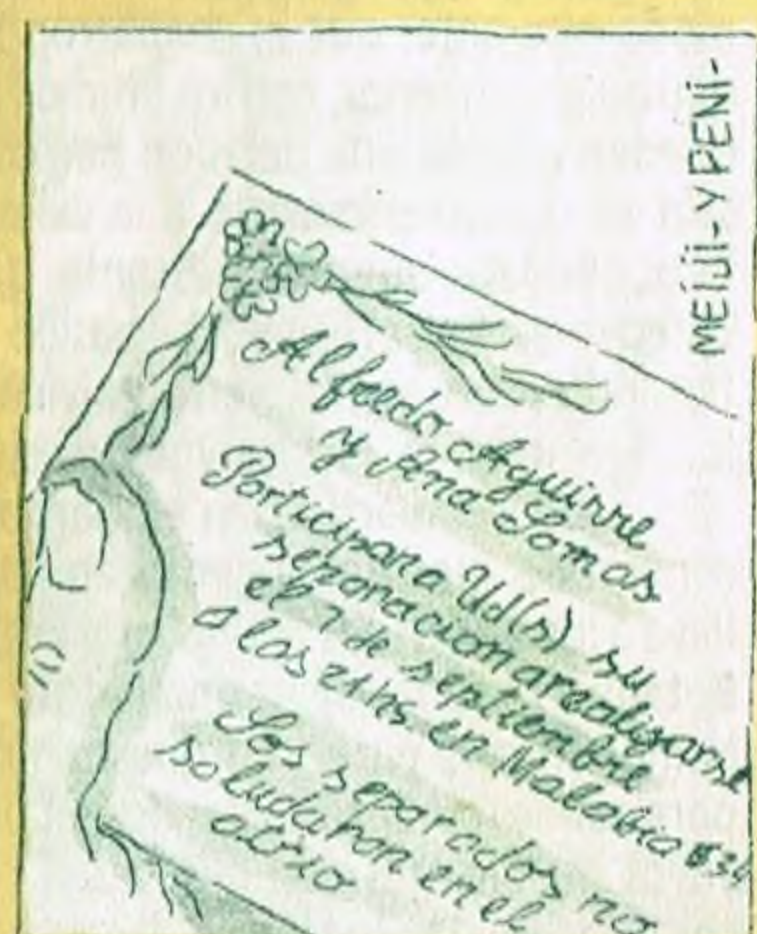 MEIJI- Y PENI-
Alfredo Aguirre
y Ana Lomas
Participan a Ud(s) su
separacion a realizarse
el 7 de septiembre
a las 21hs en Malabia
Los separados no
saludaran en el
atrio